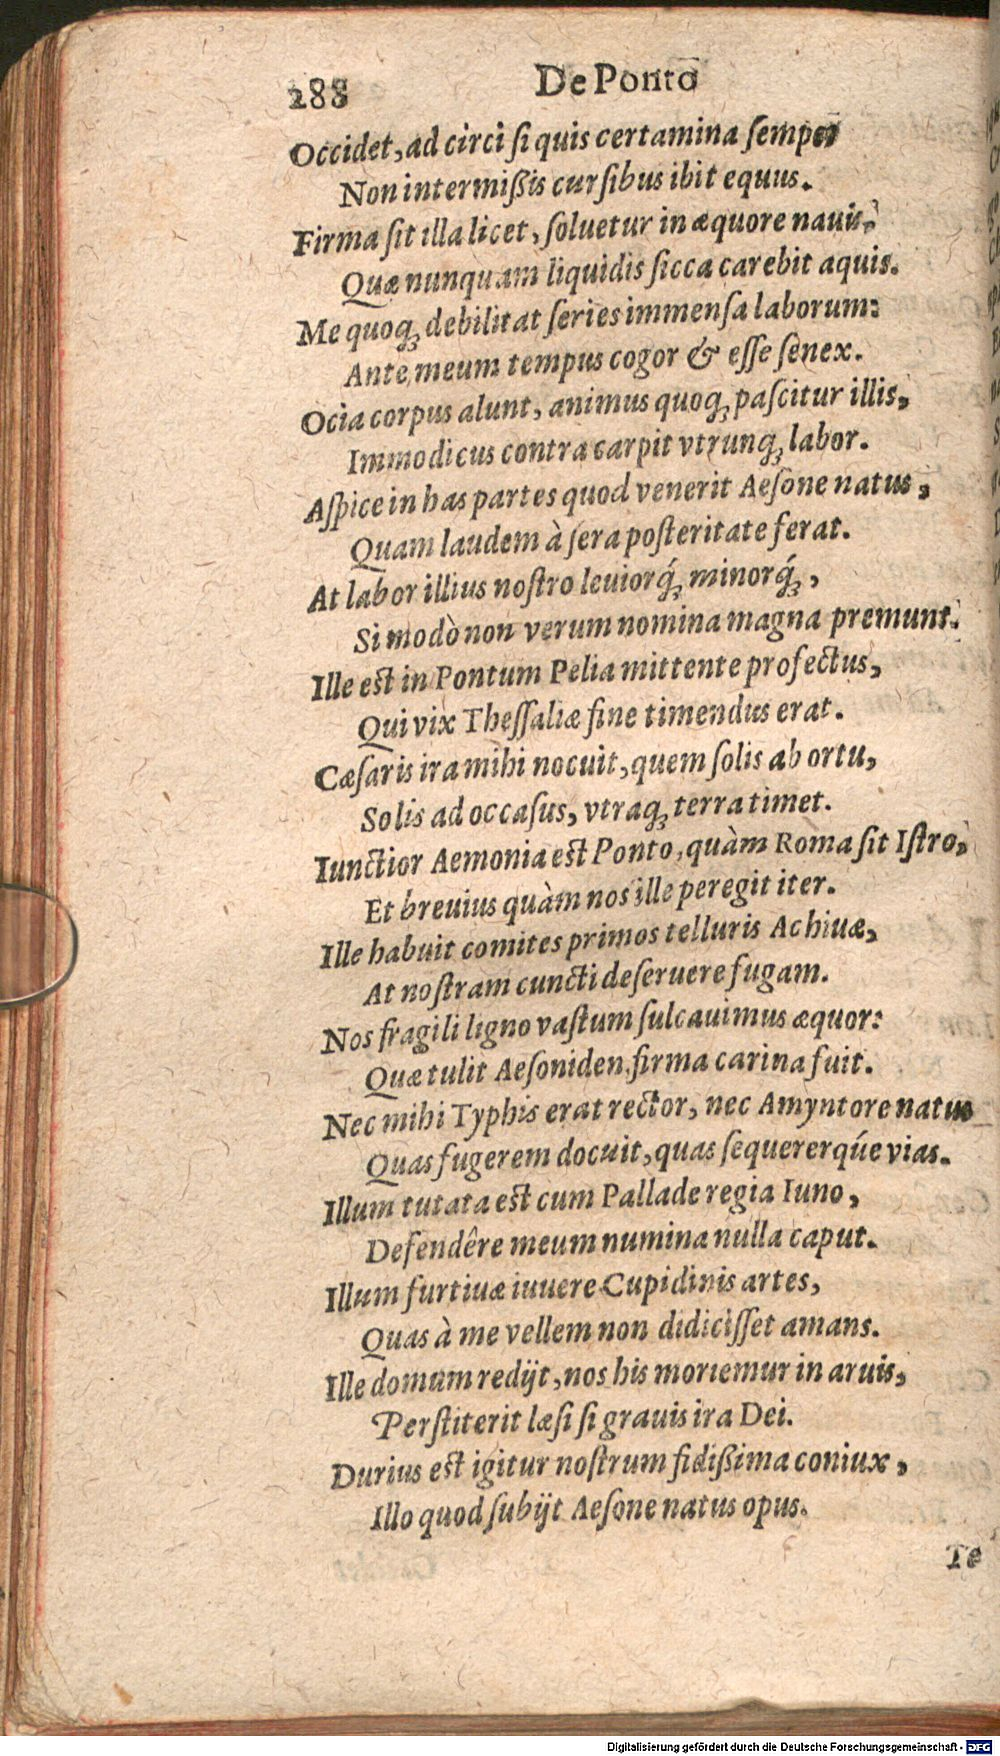 288 De Ponto
Occidet, ad circi ſi quis certamina ſemper
Non intermißis curſibus ibit equus.
Firma ſit illa licet, ſoluetur in æquore nauis,
Quæ nunquam liquidis ſicca carebit aquis.
Me quoq; debilitat ſeries immenſa laborum:
Ante meum tempus cogor & eſſe ſenex.
Ocia corpus alunt, animus quoq; paſcitur illis,
Immodicus contra carpit vtrunq; labor.
Aſpice in has partes quod venerit Aeſone natus,
Quam laudem à ſera poſteritate ferat.
At labor illius noſtro leuiorq́; minorq́;,
Si modò non verum nomina magna premunt.
Ille est in Pontum Pelia mittente profectus,
Qui vix Theſſaliæ fine timendus erat.
Cæſaris ira mihi nocuit, quem ſolis ab ortu,
Solis ad occaſus, vtraq; terra timet.
Iunctior Aemonia est Ponto, quàm Roma ſit Iſtro,
Et breuius quàm nos ille peregit iter.
Ille habuit comites primos telluris Achiuæ,
At noſtram cuncti deſeruere fugam.
Nos fragili ligno vaſtum ſulcauimus æquor:
Quæ tulit Aeſoniden, firma carina fuit.
Nec mihi Typhis erat rector, nec Amyntore natus
Quas fugerem docuit, quas ſequererq́ue vias.
Illum tutata est cum Pallade regia Iuno,
Defendêre meum numina nulla caput.
Illum furtiuæ iuuere Cupidinis artes,
Quas à me vellem non didiciſſet amans.
Ille domum redijt, nos his moriemur in aruis,
Perſtiterit læſi ſi grauis ira Dei.
Durius est igitur noſtrum fidißima coniux,
Illo quod ſubijt Aeſone natus opus.
Te
Digitalisierung gefördert durch die Deutsche Forschungsgemeinschaft - DFG